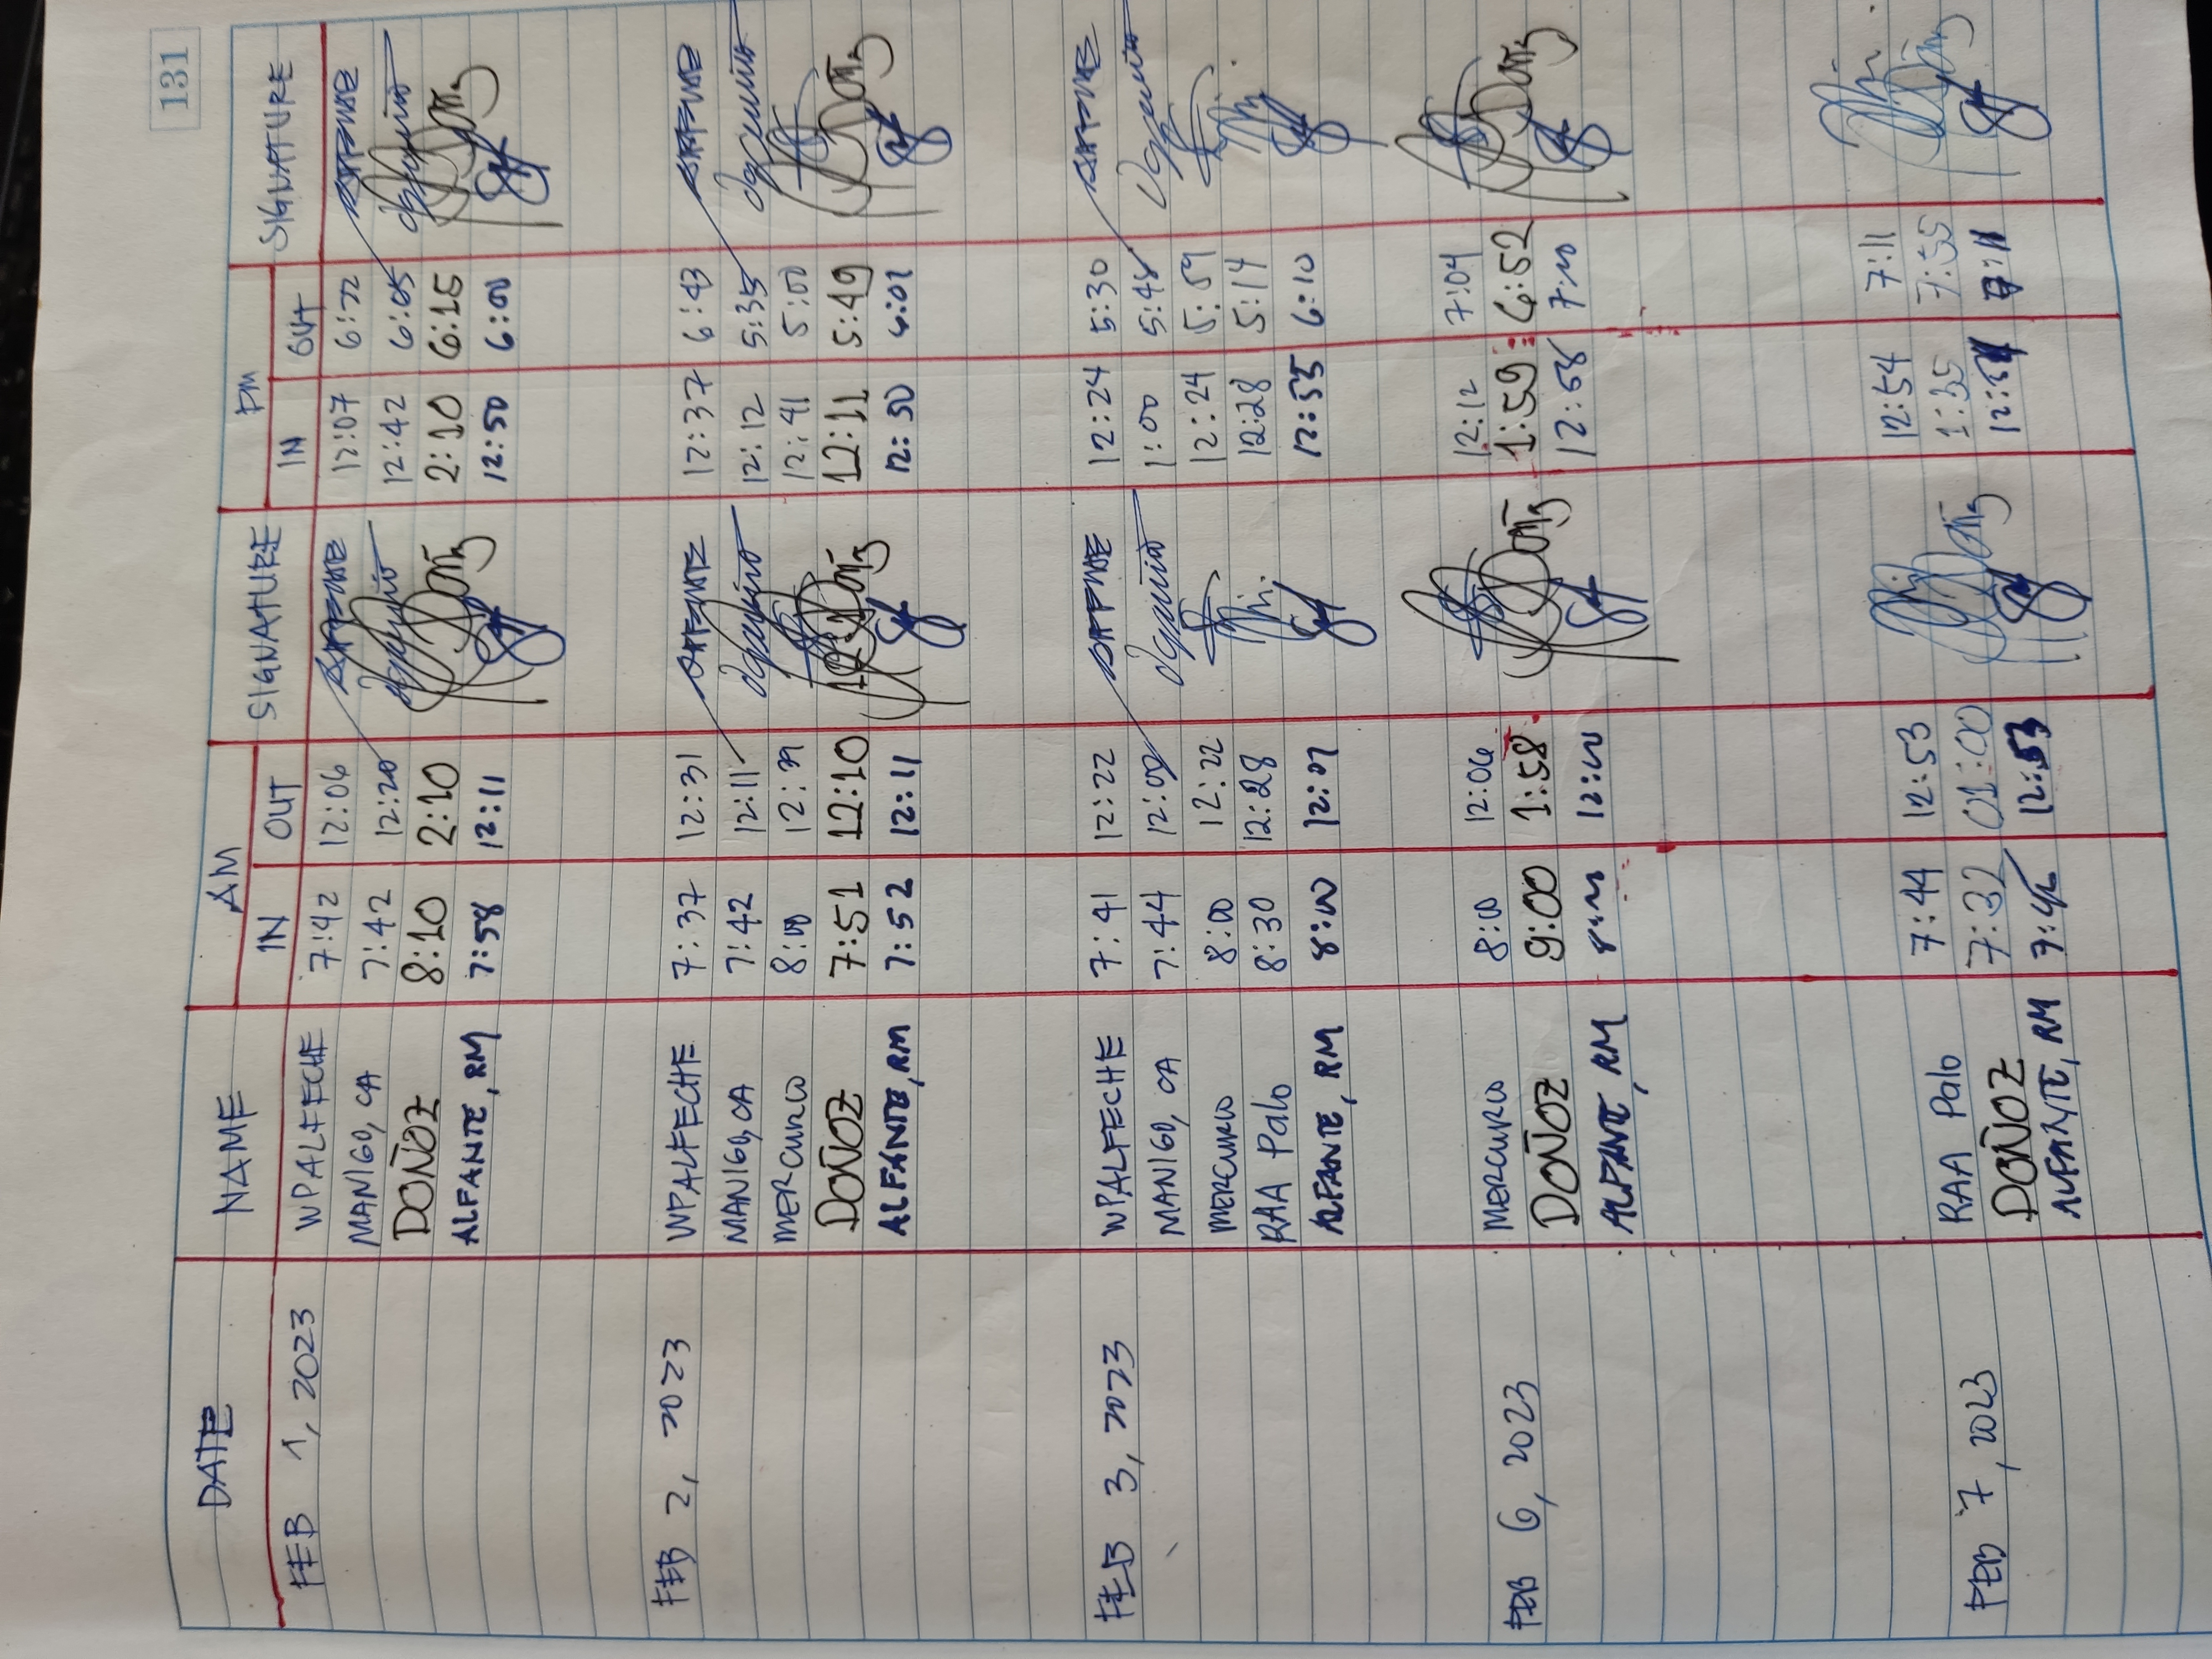 131
DATE NAME AM SIGNATURE PM SIGNATURE
IN OUT IN OUT
FEB 1, 2023 WPALFECHE 7:42 12:06 12:07 6:22
MANIGO, CA 7:42 12:20 12:42 6:05
DOÑOZ 8:10 2:10 2:10 6:15
ALFANTE, RM 7:58 12:11 12:50 6:00
FEB 2, 2023 WPALFECHE 7:37 12:31 12:37 6:43
MANIGO, CA 7:42 12:11 12:12 5:35
MERCURIO 8:00 12:39 12:41 5:00
DOÑOZ 7:51 12:10 12:11 5:49
ALFANTE, RM 7:52 12:11 12:50 6:01
FEB 3, 2023 WPALFECHE 7:41 12:22 12:24 5:30
MANIGO, CA 7:44 12:00 1:00 5:48
MERCURIO 8:00 12:22 12:24 5:59
RAA Palo 8:30 12:28 12:28 5:14
ALFANTE, RM 8:00 12:01 12:55 6:10
FEB 6, 2023 MERCURIO 8:00 12:06 12:12 7:04
DOÑOZ 9:00 1:58 1:59 6:52
ALFANTE, RM 8:00 12:00 12:58 7:00
FEB 7, 2023 RAA Palo 7:44 12:53 12:54 7:11
DOÑOZ 7:32 01:00 1:35 7:55
ALFANTE, RM 12:53